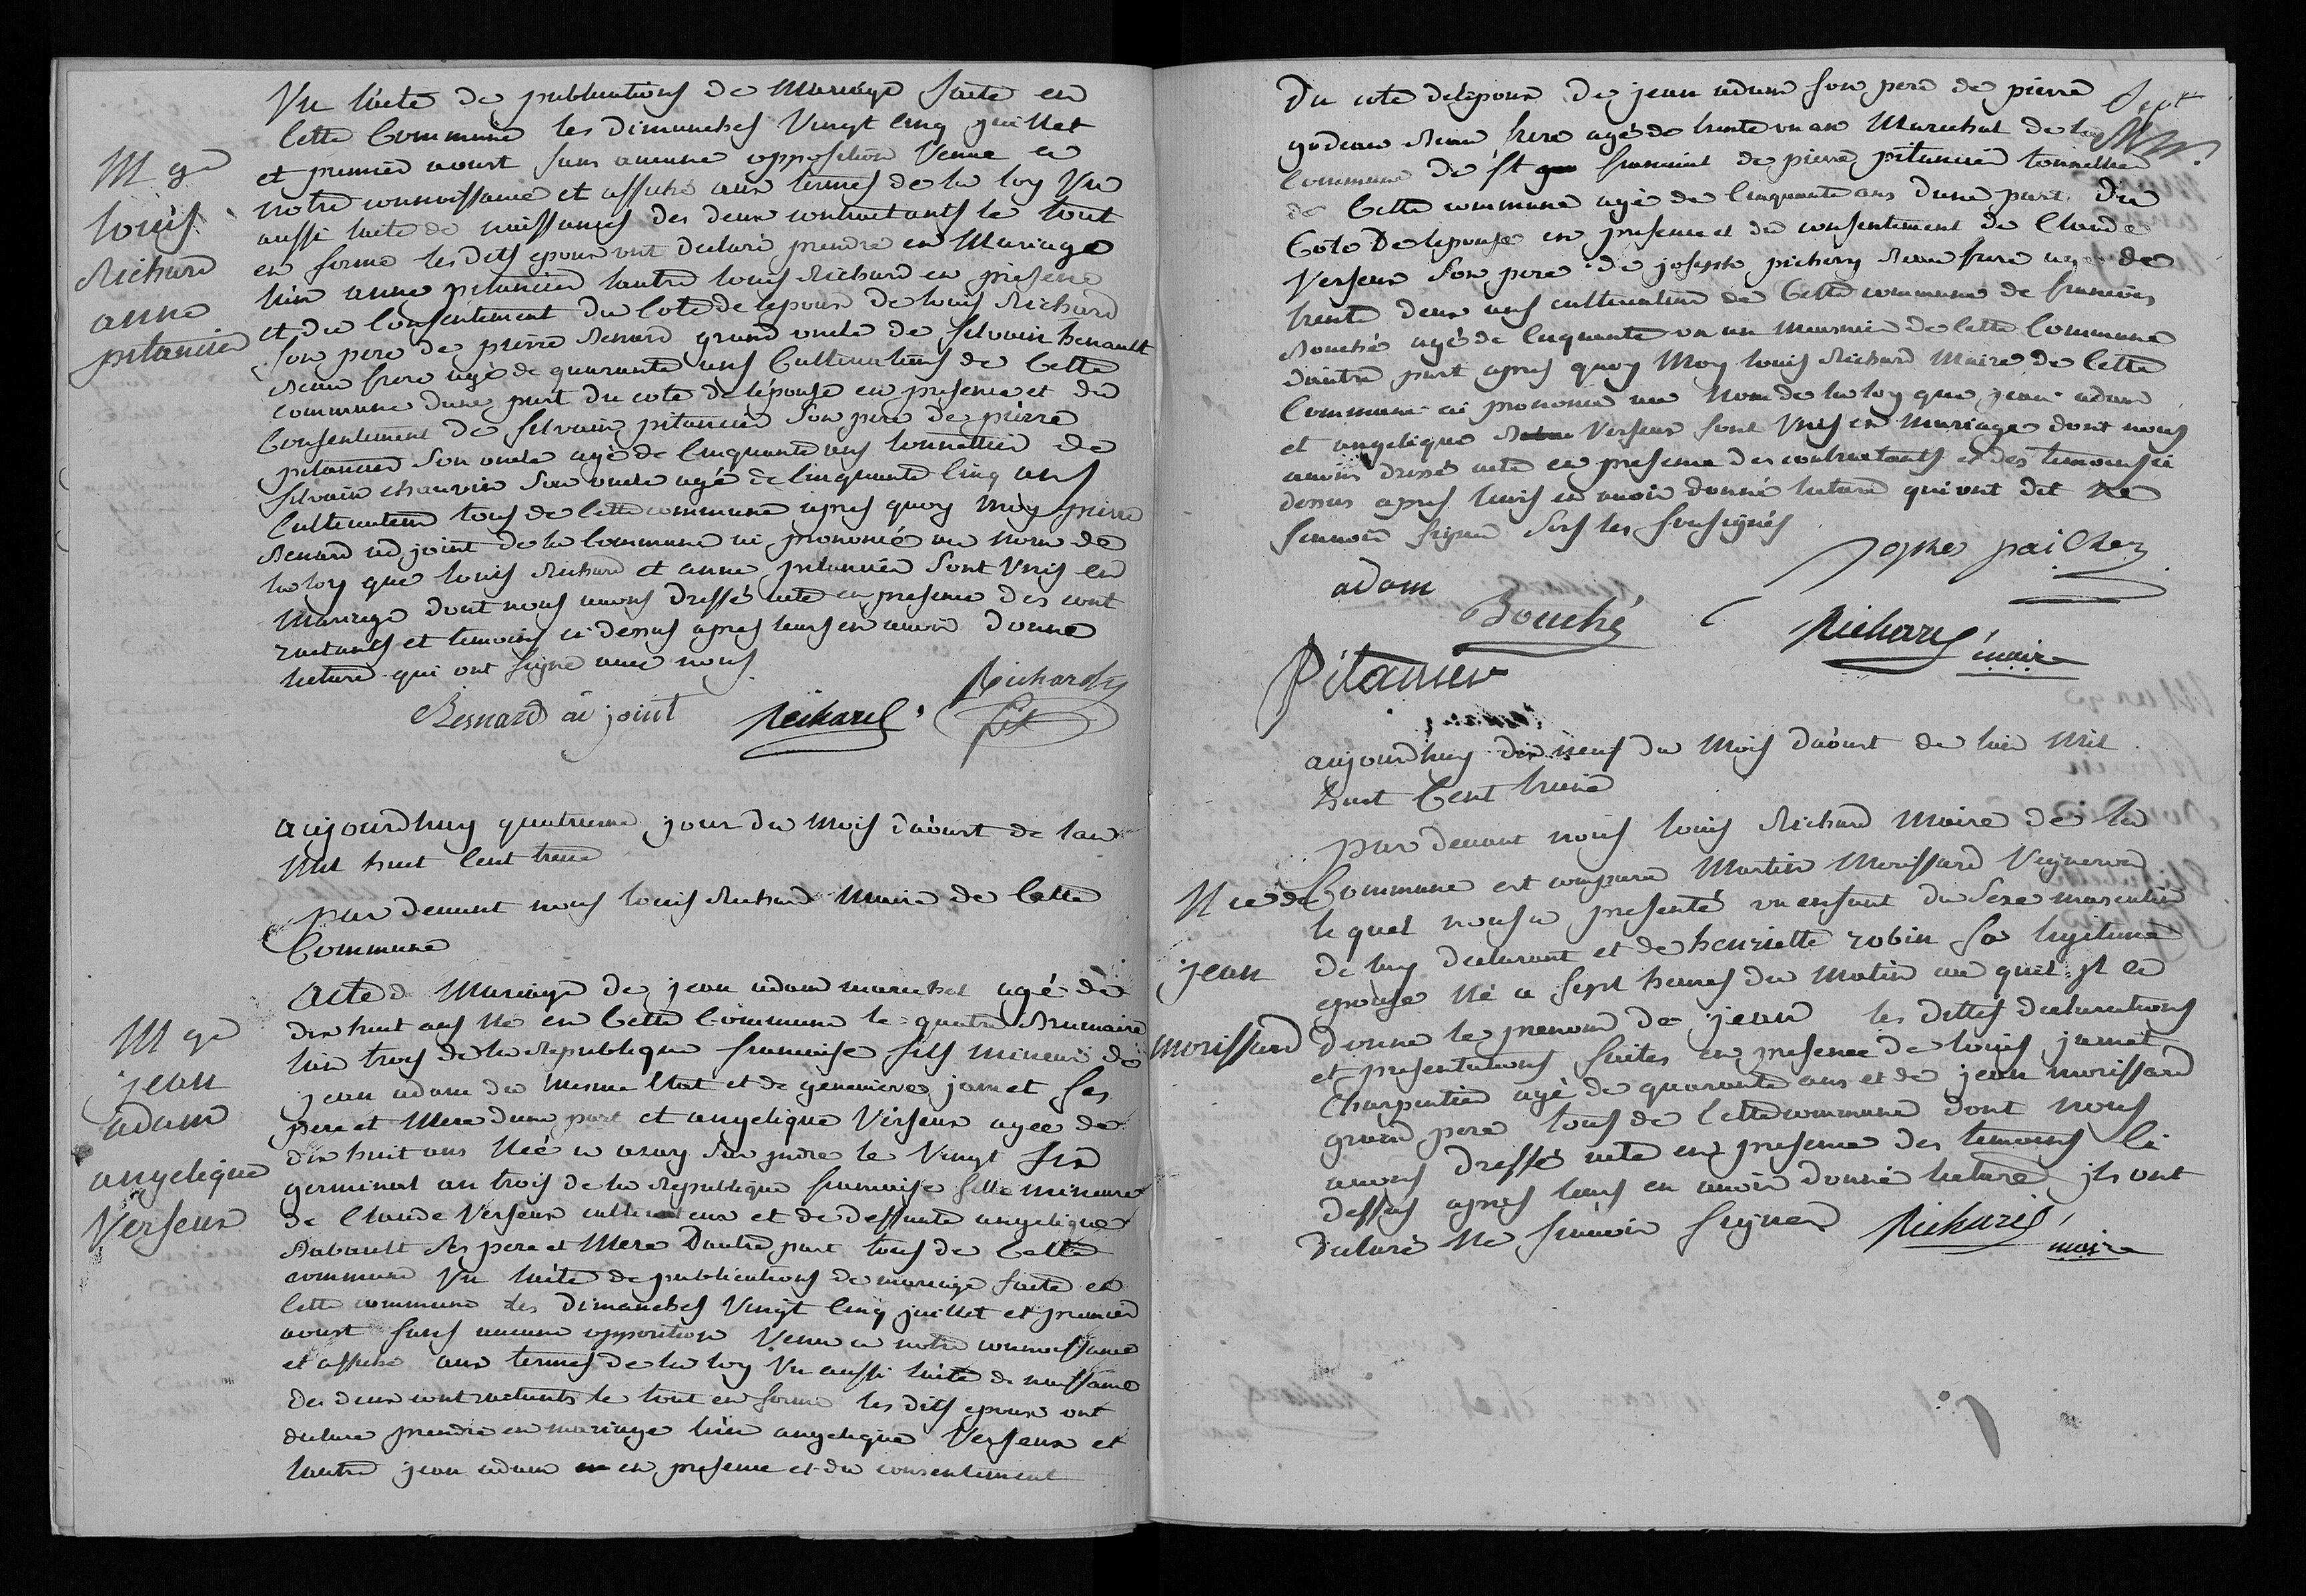 Vu lacte de publications de Mariage faite en
Cette Commune les dimanches Vingt Cinq juillet
et premier aoust sans aucune opposition Venue a
notre connoissance et affiché aux termes de la loy Vu
aussi lacte de naissances des deux contractants le tout
en forme les dits epoux ont declaré prendre en Mariage
lun anne pitancier lautre louis Richard en presence
et du Consentement du Cote de lepoux de louis Richard
son pere de pierre Benard grand oncle de silvain henault
Beau frere agé de quarante ans Cultivateurs de Cette
commune dune part du cote de lepouse en presence et du
Consentement de silvain pitancier son pere de pierre
pitancier son oncle agé de Cinquante ans tonnellier de
silvain chauvin son oncle agé de Cinquante Cinq ans
Cultivateur tous de Cette commune apres quoy moy pierre
Benard adjoint de la Commune ai prononcé au nom de
la loy que louis Richard et anne pitancier sont Unis en
Mariage dont nous avons Dressé acte en presence des cont
ractants et temoins ci dessus apres leurs en avoir donné
lecture qui ont signé avec nous
Mge
louis
Richard
anne
pitancier
Besnard ai joint Richard Richard
fils
aujourdhuy quatrieme jour du Mois daoust de lan
Mil huit Cent treize
par devant nous louis Richard Maire de Cette
Commune
Acte de Mariage de jean adam marechal agé de
dix huit ans Né en Cette Commune le quatre Brumaire
lan trois de la Republique francaise fils mineur de
jean adam du mesme Etat et de genevieve jamet ses
pere et Mere dune part et angelique Verseux agee de
dix huit ans Née a azay sur indre le Vingt six
germinal an trois de la Republique francaise fille mineure
de Claude Verseux cultivateur et de deffunte angelique
Rabault Ses pere et Mere Dautre part tous de Cette
commune Vu lacte de publications de mariage faite en
Cette commune les Dimanches Vingt Cinq juillet et premier
aoust sans aucune opposition Venue a notre connoissance
et affiché aux termes de la loy Vu aussi lacte de naissance
des deux contractants le tout en forme les dits epoux ont
declaré prendre en mariage lun angelique Verseux et
lautre jean adam en presence et du consentement
Mge
jean
adam
angelique
Verseux
Sept
Du cote delepoux De jean adam son pere de pierre
godeau Beau frere agé de trente un an Marechal de la
Commune de st francaint de pierre pitancier tonnellier
de Cette commune agé de Cinquante ans dune part. Du
Cote De lepouse en presence et du consentement de Claude
Verseux son pere de joseph pichery Beau frere agé de
trente deux ans cultivateur de Cette commune de francois
Bouché agé de Cinquante un an Meusnier de Cette Commune
dautre part apres quoy Moy louis Richard Maire de Cette
Commune ai prononcé au Nom de la loy que jean adam
et angelique Verseux sont Unis en Mariage dont nous
avons dressé acte en presence des contractants et des temoins ci
dessus apres leurs en avoir donné lecture qui ont dit ne
scavoir signer sors les sousignés
adam
Bouché
Richard maire
Pitancier
aujourdhuy dix neuf du Mois daoust de lan Mil
huit Cent treize
par devant nous louis Richard Maire de la
Commune est comparu Martin Morissard Vigneron
le quel nous a presenté un enfant du Sexe masculin
de luy declarant et de henriette robin sa legitime
epouse Né a sept heures du matin au quel jl a
donné le prenom de jean les dittes declarations
et presentations faites en presence de louis jamet
Charpentier agé de quarante ans et de jean morissard
grand pere tous de Cette commune dont nous
avons dressé acte en presence des temoins Ci
dessus apres leurs en avoir donné lecture jls ont
declaré Ne scavoir signer Richard
maire
Nce de
jean
morissard